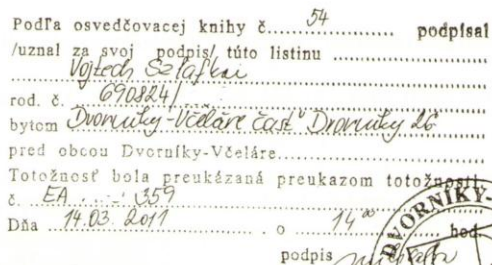 Podľa osvedčovacej knihy č. 54 podpísal
/uznal za svoj podpis/ túto listinu
Vojtech Szlafkai
rod. č. 690824/
bytom Dvorníky-Včeláre časť Dvorníky 26
pred obcou Dvorníky-Včeláre
Totožnosť bola preukázaná preukazom totožnosti
č. EA 359
Dňa 14.03.2011 o 14⁰⁰ hod.
podpis
DVORNÍKY-